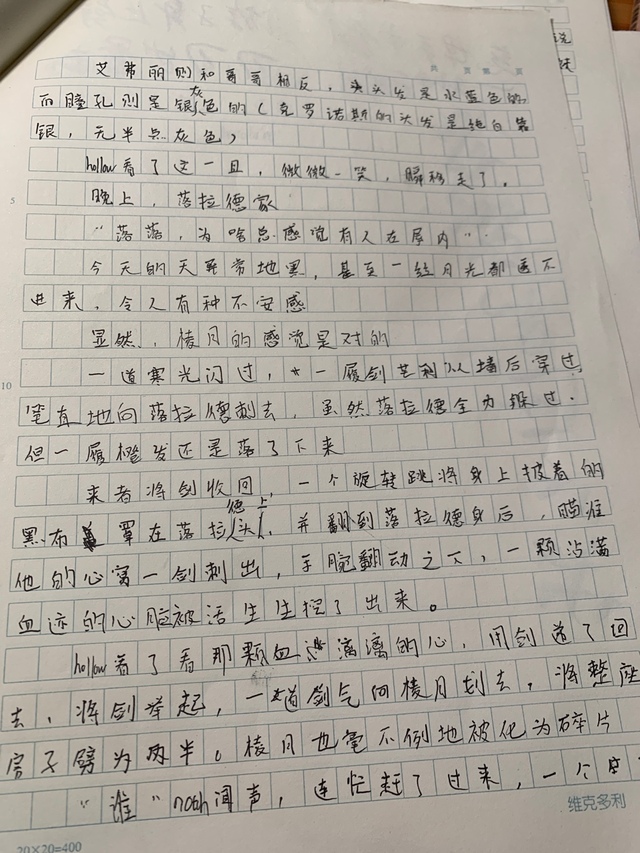 共 页 第 页
艾弗丽则和哥哥相反，头发是水蓝色的
而瞳孔则是银灰色的（克罗诺斯的头发是纯白靠
银，无半点灰色）
hollow看了这一旦，微微一笑，瞬移走了。
晚上，落拉德家
“落落，为啥总感觉有人在屋内”
今天的天异常地黑，甚至一丝月光都透不
进来，令人有种不安感
显然，棱月的感觉是对的
一道寒光闪过，一履剑芒利从墙后穿过
笔直地向落拉德刺去，虽然落拉德全力躲过.
但一履橙发还是落了下来
来者将剑收回，一个旋转跳将身上披着的
黑布罩在落拉德头上，并翻到落拉德身后，瞄准
他的心窝一剑刺出，手腕翻动之下，一颗沾满
血迹的心脏被活生生挖了出来。
hollow看了看那颗血漓漓的心，用剑送了回
去，将剑举起，一道剑气向棱月划去，将整座
房子劈为两半。棱月也毫不例地被化为碎片
“谁”noth闻声，连忙赶了过来，一个
5
10
20×20=400
维克多利